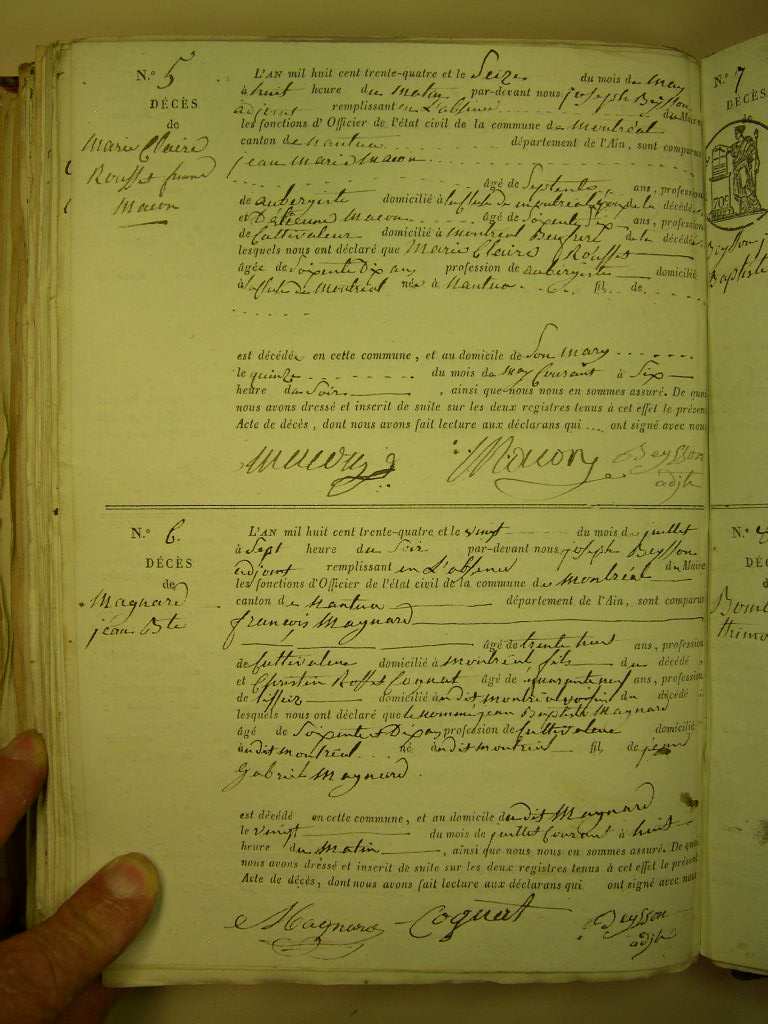 N.° 5
DÉCÈS
de
Marie Claire
Rousset femme
Macon
L'AN mil huit cent trente-quatre et le Seize du mois de May
à huit heure du Matin par-devant nous joseph Beysson
adjoint remplissant en L'absence du Maire
les fonctions d'Officier de l'état civil de la commune de Montréal
canton de Nantua département de l'Ain, sont comparus
jean Marie Macon
âgé de Septente ans, profession
de aubergiste domicilié à la Cluse de Montréal de la décédée
et D'Etienne Macon âgé de Soixente Six ans, profession
de Cultivateur domicilié à Montréal de la décédée
lesquels nous ont déclaré que Marie Claire Rousset
âgée de Soixente Dix ans profession de aubergiste domicilié
à la Cluse de Montréal née à Nantua fil de
est décédée en cette commune, et au domicile de Son Mary
le quinze du mois de May Courant à Six
heure du Soir , ainsi que nous nous en sommes assuré. De quoi
nous avons dressé et inscrit de suite sur les deux registres tenus à cet effet le présent
Acte de décès, dont nous avons fait lecture aux déclarans qui ont signé avec nous
Macon Macon Beysson
adjt
N.° 6
DÉCÈS
de
Magnard
jean Bte
L'AN mil huit cent trente-quatre et le vingt du mois de juillet
à Sept heure du Soir par-devant nous joseph Beysson
adjoint remplissant en L'absence du Maire
les fonctions d'Officier de l'état civil de la commune de Montréal
canton de Nantua département de l'Ain, sont comparus
françois Magnard
âgé de trente huit ans, profession
de Cultivateur domicilié à Montréal fils du décédé
et Christin Roffet Connat âgé de quarante neuf ans, profession
de tissier domicilié audit Montréal voisin du décédé
lesquels nous ont déclaré que le Nommé jean Baptiste Magnard
âgé de Soixente et Dix ans profession de Cultivateur domicilié
audit Montréal né audit Montréal fil de jeand
Gabriel Magnard.
est décédé en cette commune, et au domicile dudit Magnard
le vingt du mois de juillet Courant à huit
heure du Matin , ainsi que nous nous en sommes assuré. De quoi
nous avons dressé et inscrit de suite sur les deux registres tenus à cet effet le présent
Acte de décès, dont nous avons fait lecture aux déclarans qui ont signé avec nous
Magnard Coquat Beysson
adjt
N.° 7
DÉCÈS
de
Baptiste
N.°
DÉC
de